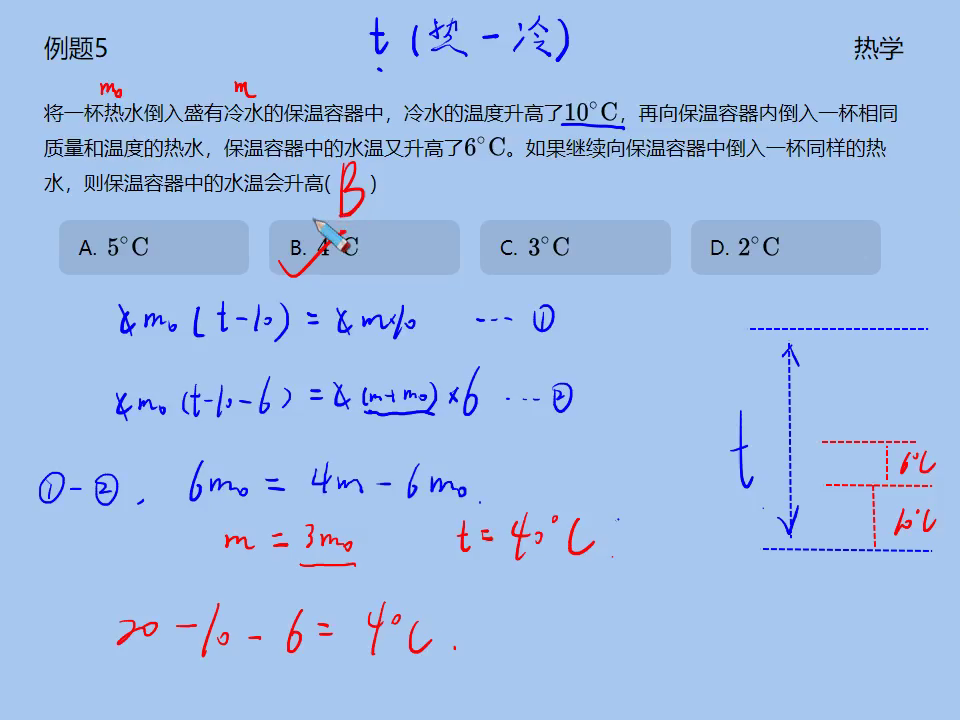 例题5
t (热-冷)
热学
m₀
m
将一杯热水倒入盛有冷水的保温容器中，冷水的温度升高了10°C，再向保温容器内倒入一杯相同
质量和温度的热水，保温容器中的水温又升高了6°C。如果继续向保温容器中倒入一杯同样的热
水，则保温容器中的水温会升高( B )
A. 5°C
B. 4°C
C. 3°C
D. 2°C
cm₀(t-10) = cm×10 ... ①
cm₀(t-10-6) = c(m+m₀)×6 ... ②
①-②, 6m₀ = 4m-6m₀.
m = 3m₀ t=40°C
20-10-6=4°C.
t
6°C
10°C